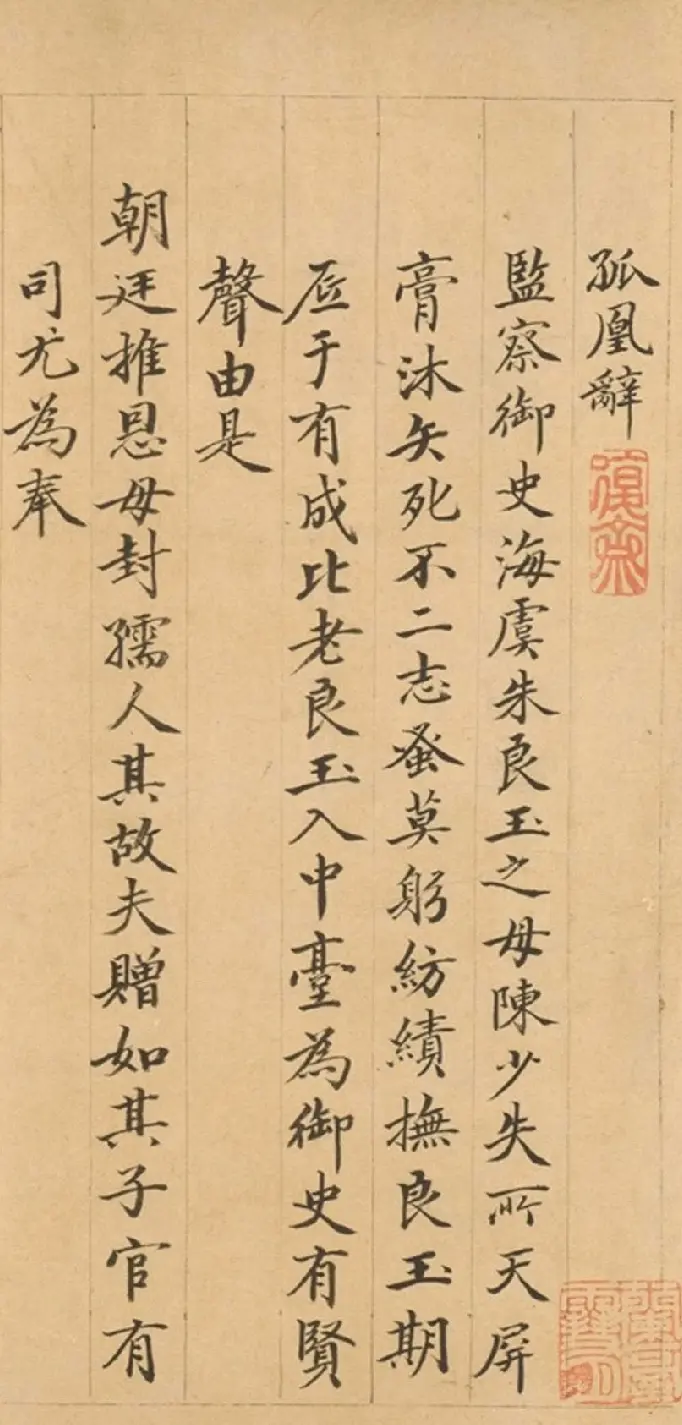 孤凰辭
監察御史海虞朱良玉之母陳少失所天屏
膏沐矢死不二志蚤莫躬紡績撫良玉期
厎于有成比老良玉入中臺為御史有賢
聲由是
朝廷推恩母封孺人其故夫贈如其子官有
司尤為奉